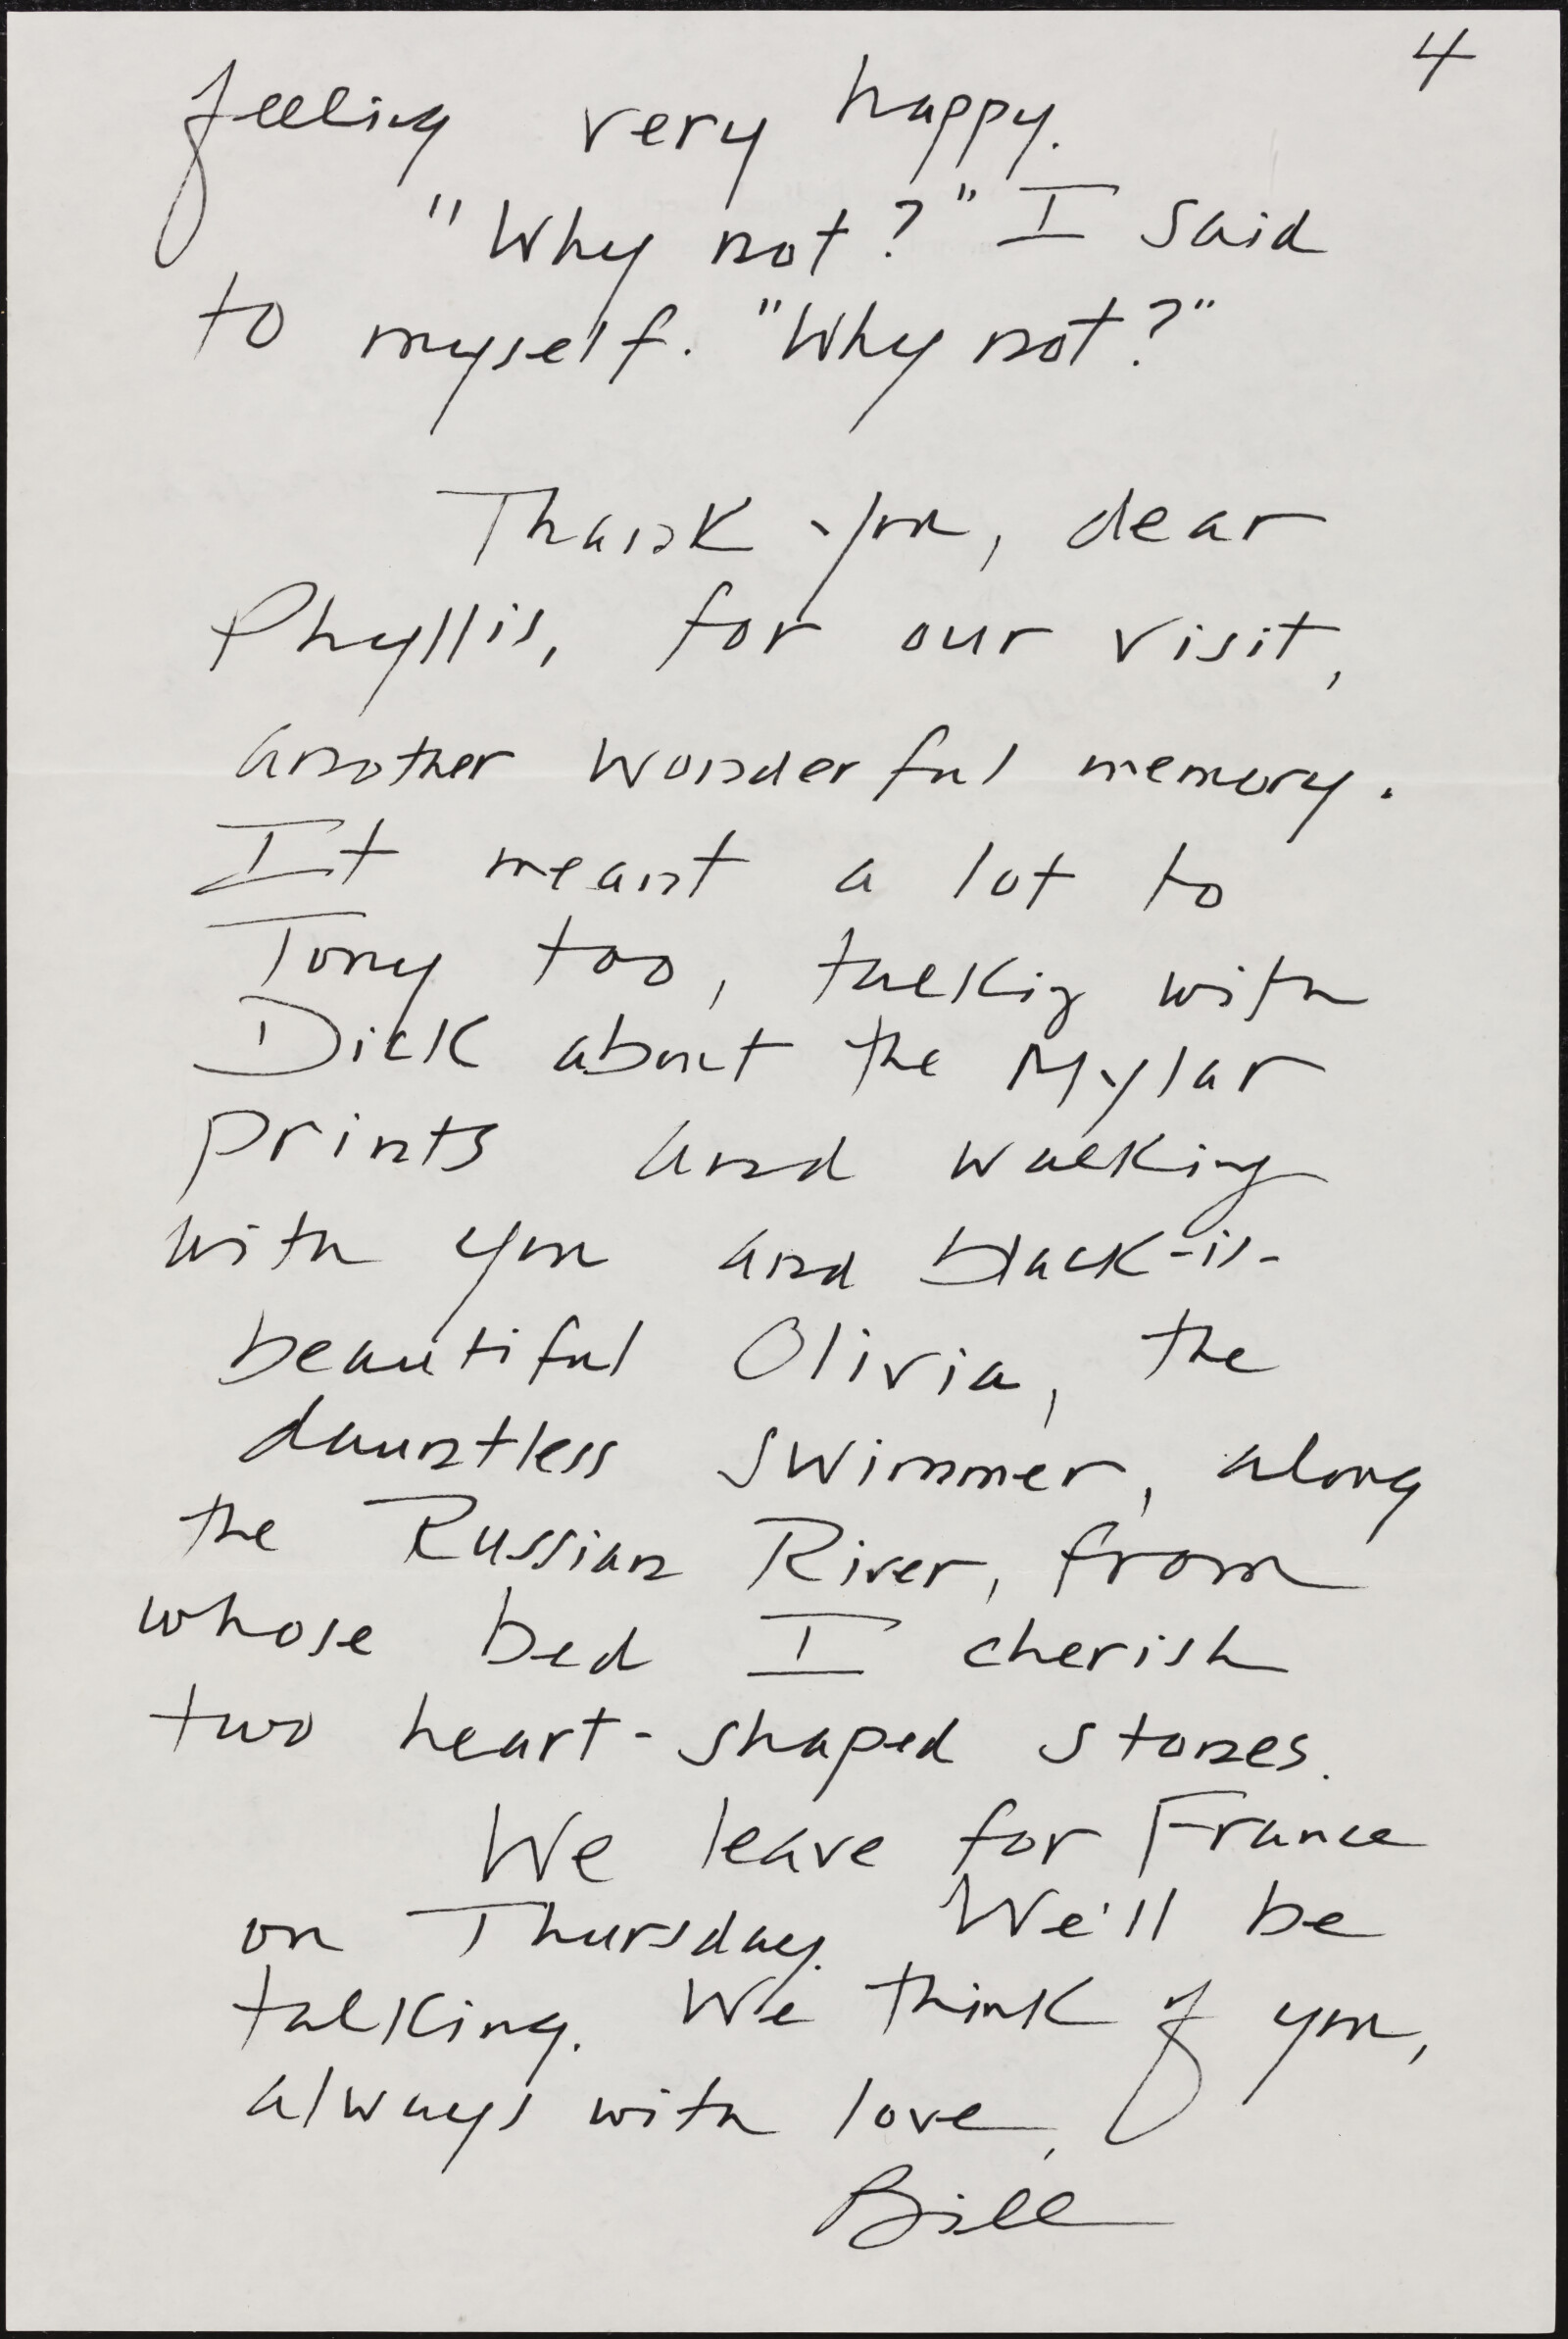 4
feeling very happy.
"Why not?" I said
to myself. "Why not?"
Thank you, dear
Phyllis, for our visit,
another wonderful memory.
It meant a lot to
Tony too, talking with
Dick about the Mylar
prints and walking
with you and black-is-
beautiful Olivia, the
dauntless swimmer, along
the Russian River, from
whose bed I cherish
two heart-shaped stones.
We leave for France
on Thursday. We'll be
talking. We think of you,
always with love,
Bill